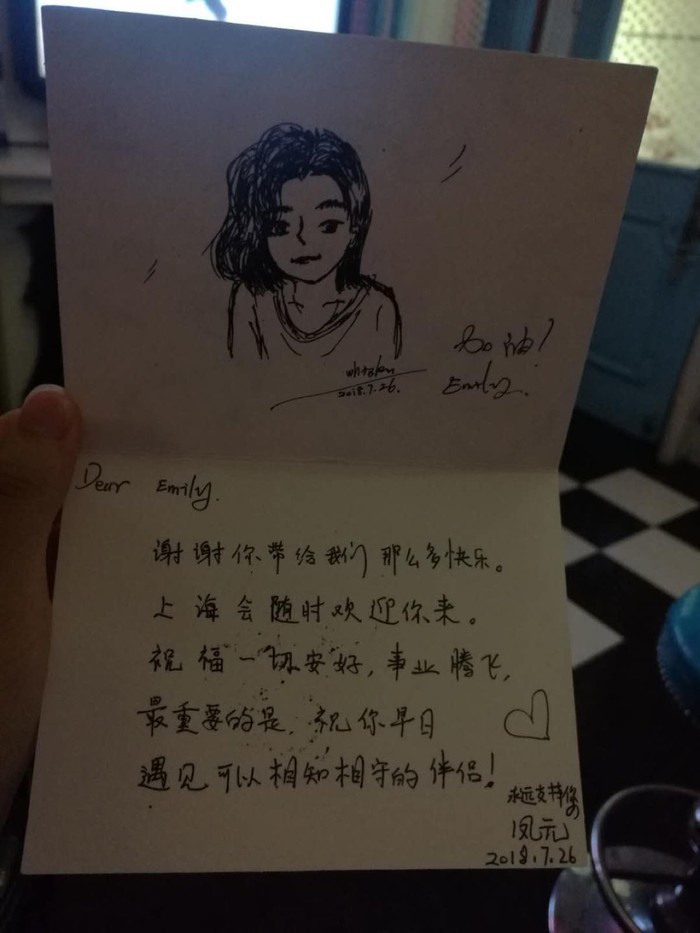 加油!
2018.7.26.
Emily.
Dear Emily.
谢谢你带给我们那么多快乐。
上海会随时欢迎你来。
祝福一切安好,事业腾飞,
最重要的是,祝你早日
遇见可以相知相守的伴侣!
永远支持你的
凤元
2018.7.26